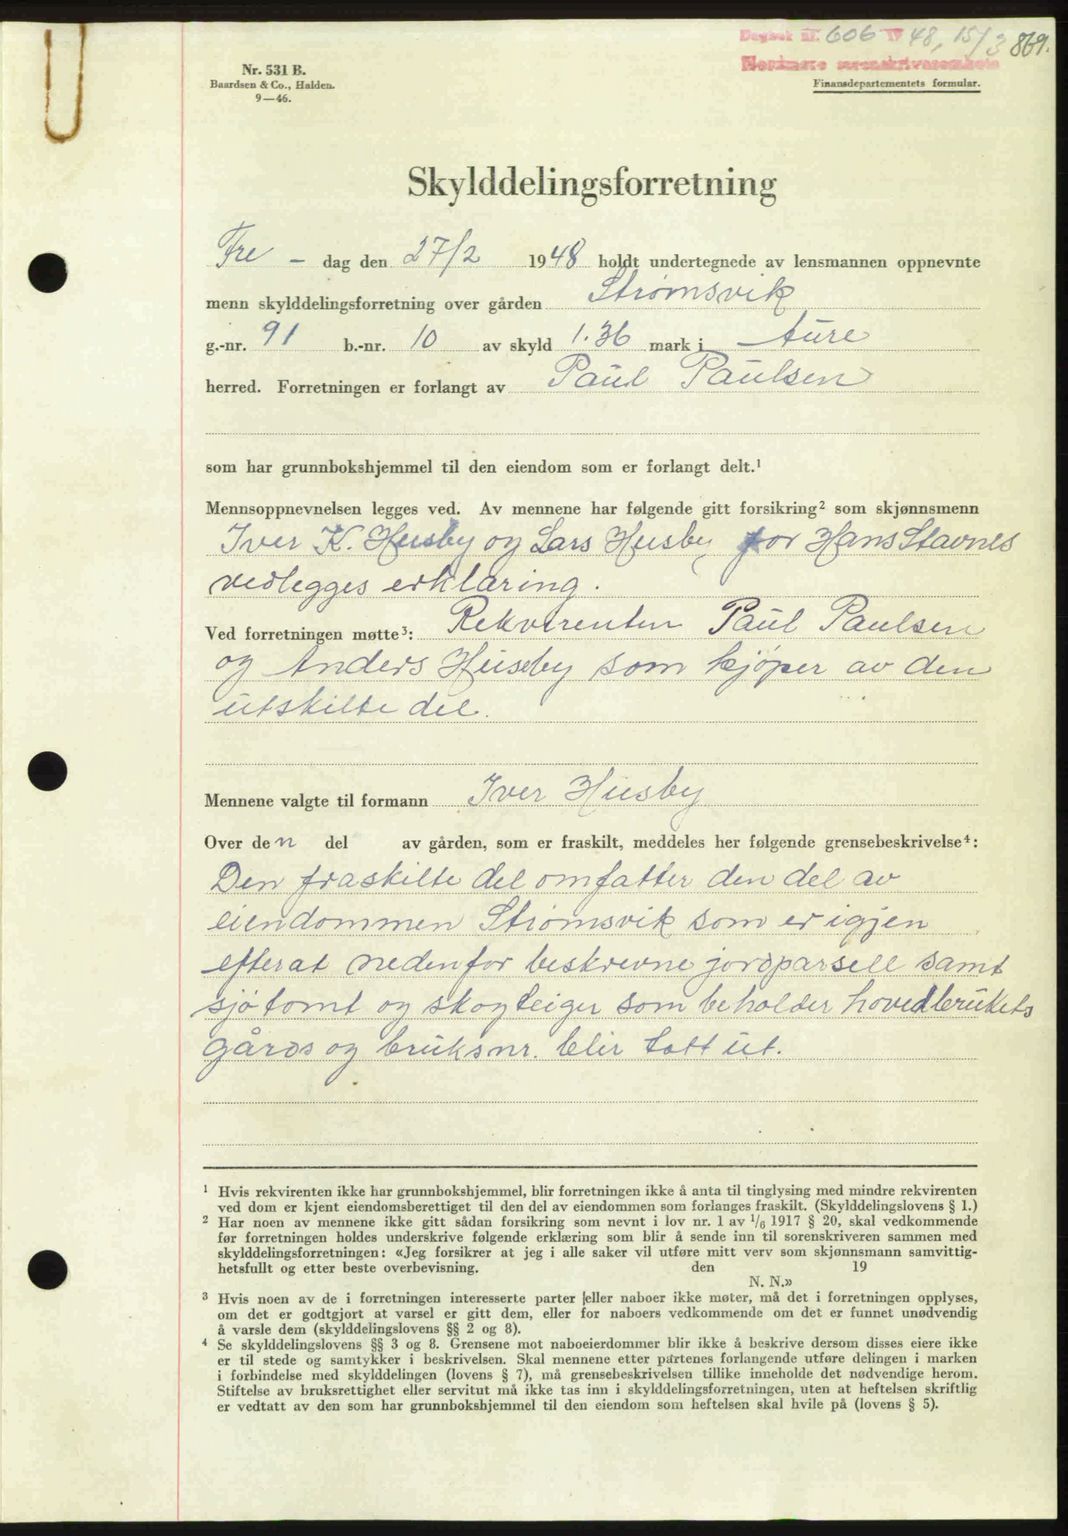 Dagbok nr. 606 19 48, 15/3 869.
Nordmøre sorenskriverembete
Nr. 531 B.
Baardsen & Co., Halden.
9—46.
Finansdepartementets formular.
Skylddelingsforretning
Fre - dag den 27/2 1948 holdt undertegnede av lensmannen oppnevnte
menn skylddelingsforretning over gården Strømsvik
g.-nr. 91 b.-nr. 10 av skyld 1.36 mark i Aure
herred. Forretningen er forlangt av Paul Paulsen
som har grunnbokshjemmel til den eiendom som er forlangt delt.¹
Mennsoppnevnelsen legges ved. Av mennene har følgende gitt forsikring² som skjønnsmenn
Iver K. Husby og Lars Husby, for Hans Stavnes
vedlegges erklæring.
Ved forretningen møtte³: Rekvirenten Paul Paulsen
og Anders Husby som kjøper av den
utskilte del.
Mennene valgte til formann Iver Husby
Over den del av gården, som er fraskilt, meddeles her følgende grensebeskrivelse⁴:
Den fraskilte del omfatter den del av
eiendommen Strømsvik som er igjen
efter at nedenfor beskrevne jordparsell samt
sjøtomt og skogteiger som beholder hovedbrukets
gårds og bruksnr. blir tatt ut.
¹ Hvis rekvirenten ikke har grunnbokshjemmel, blir forretningen ikke å anta til tinglysing med mindre rekvirenten
ved dom er kjent eiendomsberettiget til den del av eiendommen som forlanges fraskilt. (Skylddelingslovens § 1.)
² Har noen av mennene ikke gitt sådan forsikring som nevnt i lov nr. 1 av 1/6 1917 § 20, skal vedkommende
før forretningen holdes underskrive følgende erklæring som blir å sende inn til sorenskriveren sammen med
skylddelingsforretningen: «Jeg forsikrer at jeg i alle saker vil utføre mitt verv som skjønnsmann samvittig-
hetsfullt og etter beste overbevisning. den 19
N. N.»
³ Hvis noen av de i forretningen interesserte parter eller naboer ikke møter, må det i forretningen opplyses,
om det er godtgjort at varsel er gitt dem, eller for naboers vedkommende om det er funnet unødvendig
å varsle dem (skylddelingslovens §§ 2 og 8).
⁴ Se skylddelingslovens §§ 3 og 8. Grensene mot naboeierdommer blir ikke å beskrive dersom disses eiere ikke
er til stede og samtykker i beskrivelsen. Skal mennene etter partenes forlangende utføre delingen i marken
i forbindelse med skylddelingen (lovens § 7), må grensebeskrivelsen tillike inneholde det nødvendige herom.
Stiftelse av bruksrettighet eller servitut må ikke tas inn i skylddelingsforretningen, uten at heftelsen skriftlig
er vedtatt av den som har grunnbokshjemmel til den eiendom som heftelsen skal hvile på (lovens § 5).